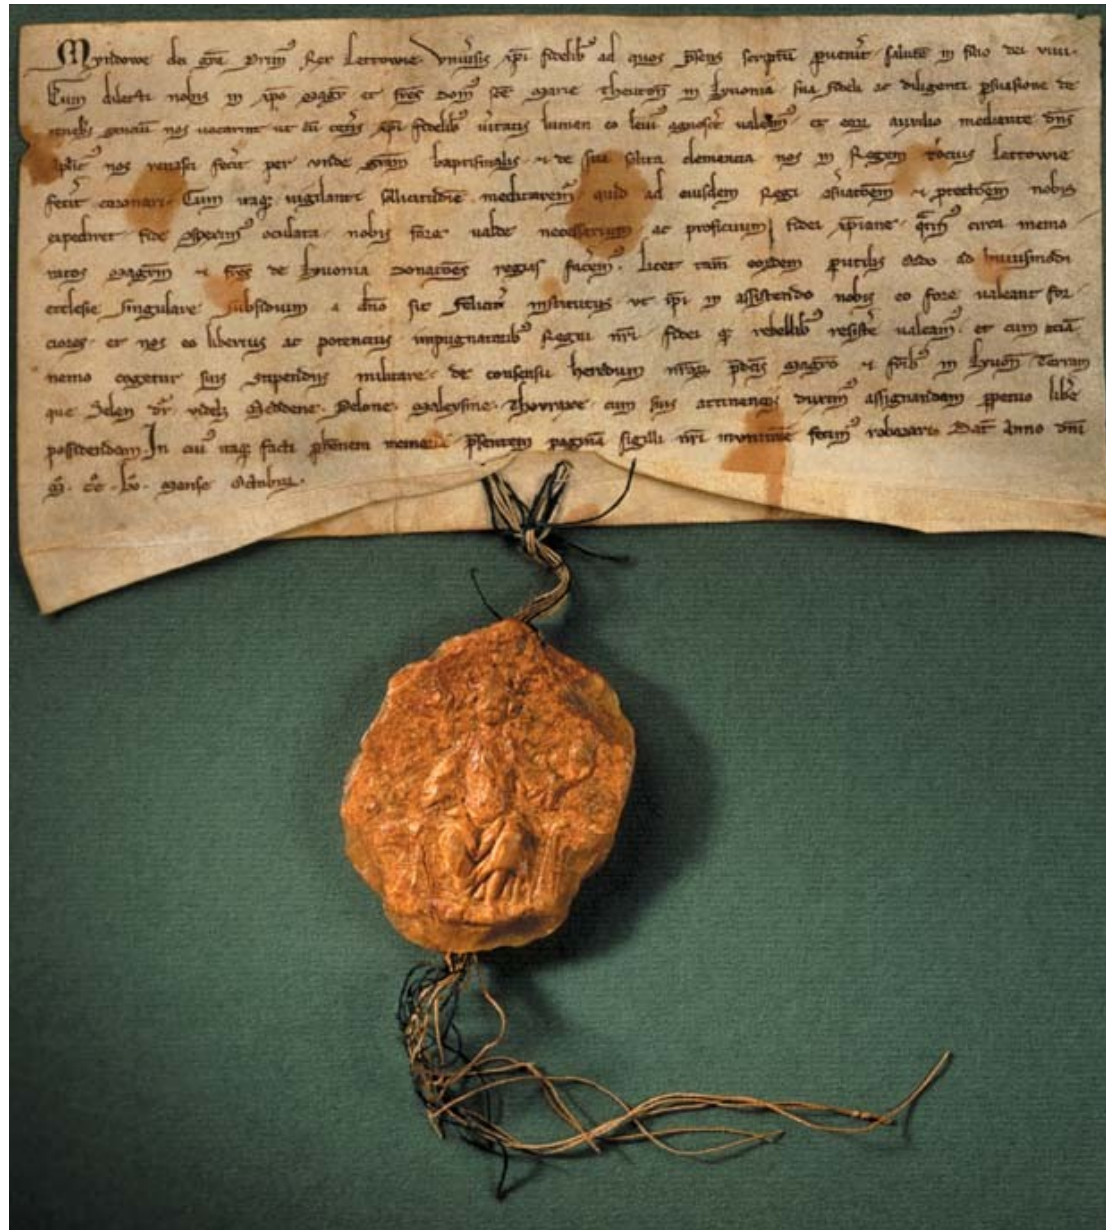 Myndowe dei gra Prim9 Rex Lettowie Univsis xpi fidelib9 ad quos psens scriptu puenit salute in filio dei vivi.
Cum dilecti nobis in xpo Magr et fres Dom9 sce Marie Theuton in Lyvonia sua fideli ac diligenti psuasione de
nos vocarint ut cu cetis xpi fidelib9 vitatis lumen eo agnosce valeam9 et eor auxilio mediante dns
nos fecit per unde gram baptismalis et de sua solita clemencia nos in Regem tocius Lettowie
fecit coronari. Cum itaq vigilanti sollicitudie meditarem quid ad eiusdem Regi et nobis
expediret fide oculata nobis fore valde necessarium ac proficuum fidei xpiane circa memo
ratos Magrm et fres de Lyvonia donacoes regias facem. licet tam eordem putilis ordo ad huiusmodi
ecclesie singulare subsidium a dno sit feliciter institutus ut ipi in assistendo nobis eo fore valeant for
ciores. et nos eo liberius ac potencius impugnatorib9 Regni nri fidei q rebellib9 resiste valeam9. et cum ecia
nemo cogetur suis stipendiis militare. de consensu heredum nror pdcis Magro et frib9 in Lyvon Terram
que Selen dr videlz Meddene. Pelone. Maleysine. Thovraxe. cum suis attinenciis duxim9 assignandam ppetuo libe
possidendam. In cui9 itaq facti memoria psentem pagina sigilli nri fecim9 roborari. Dat anno dni
M. CC. LV. Mense Octobris.